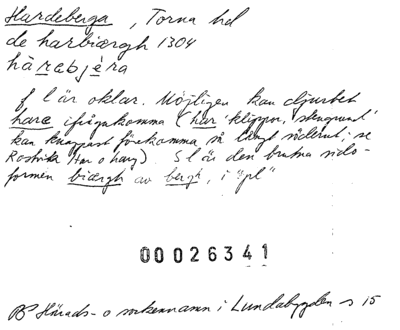 Hardeberga, Torna hd
de harbiærgh 1304
härebjéra
f l är oklar. Möjligen kan djurbet
hare ifrågakomma (har 'klippor, stengrund'
kan knappast förekomma så långt söderut; se
Rostvik Har o harg). S l är den brutna sido-
formen biærgh av bergh, i "pl"
00026341
Härads- o sockennamn i Lundabygden s 15